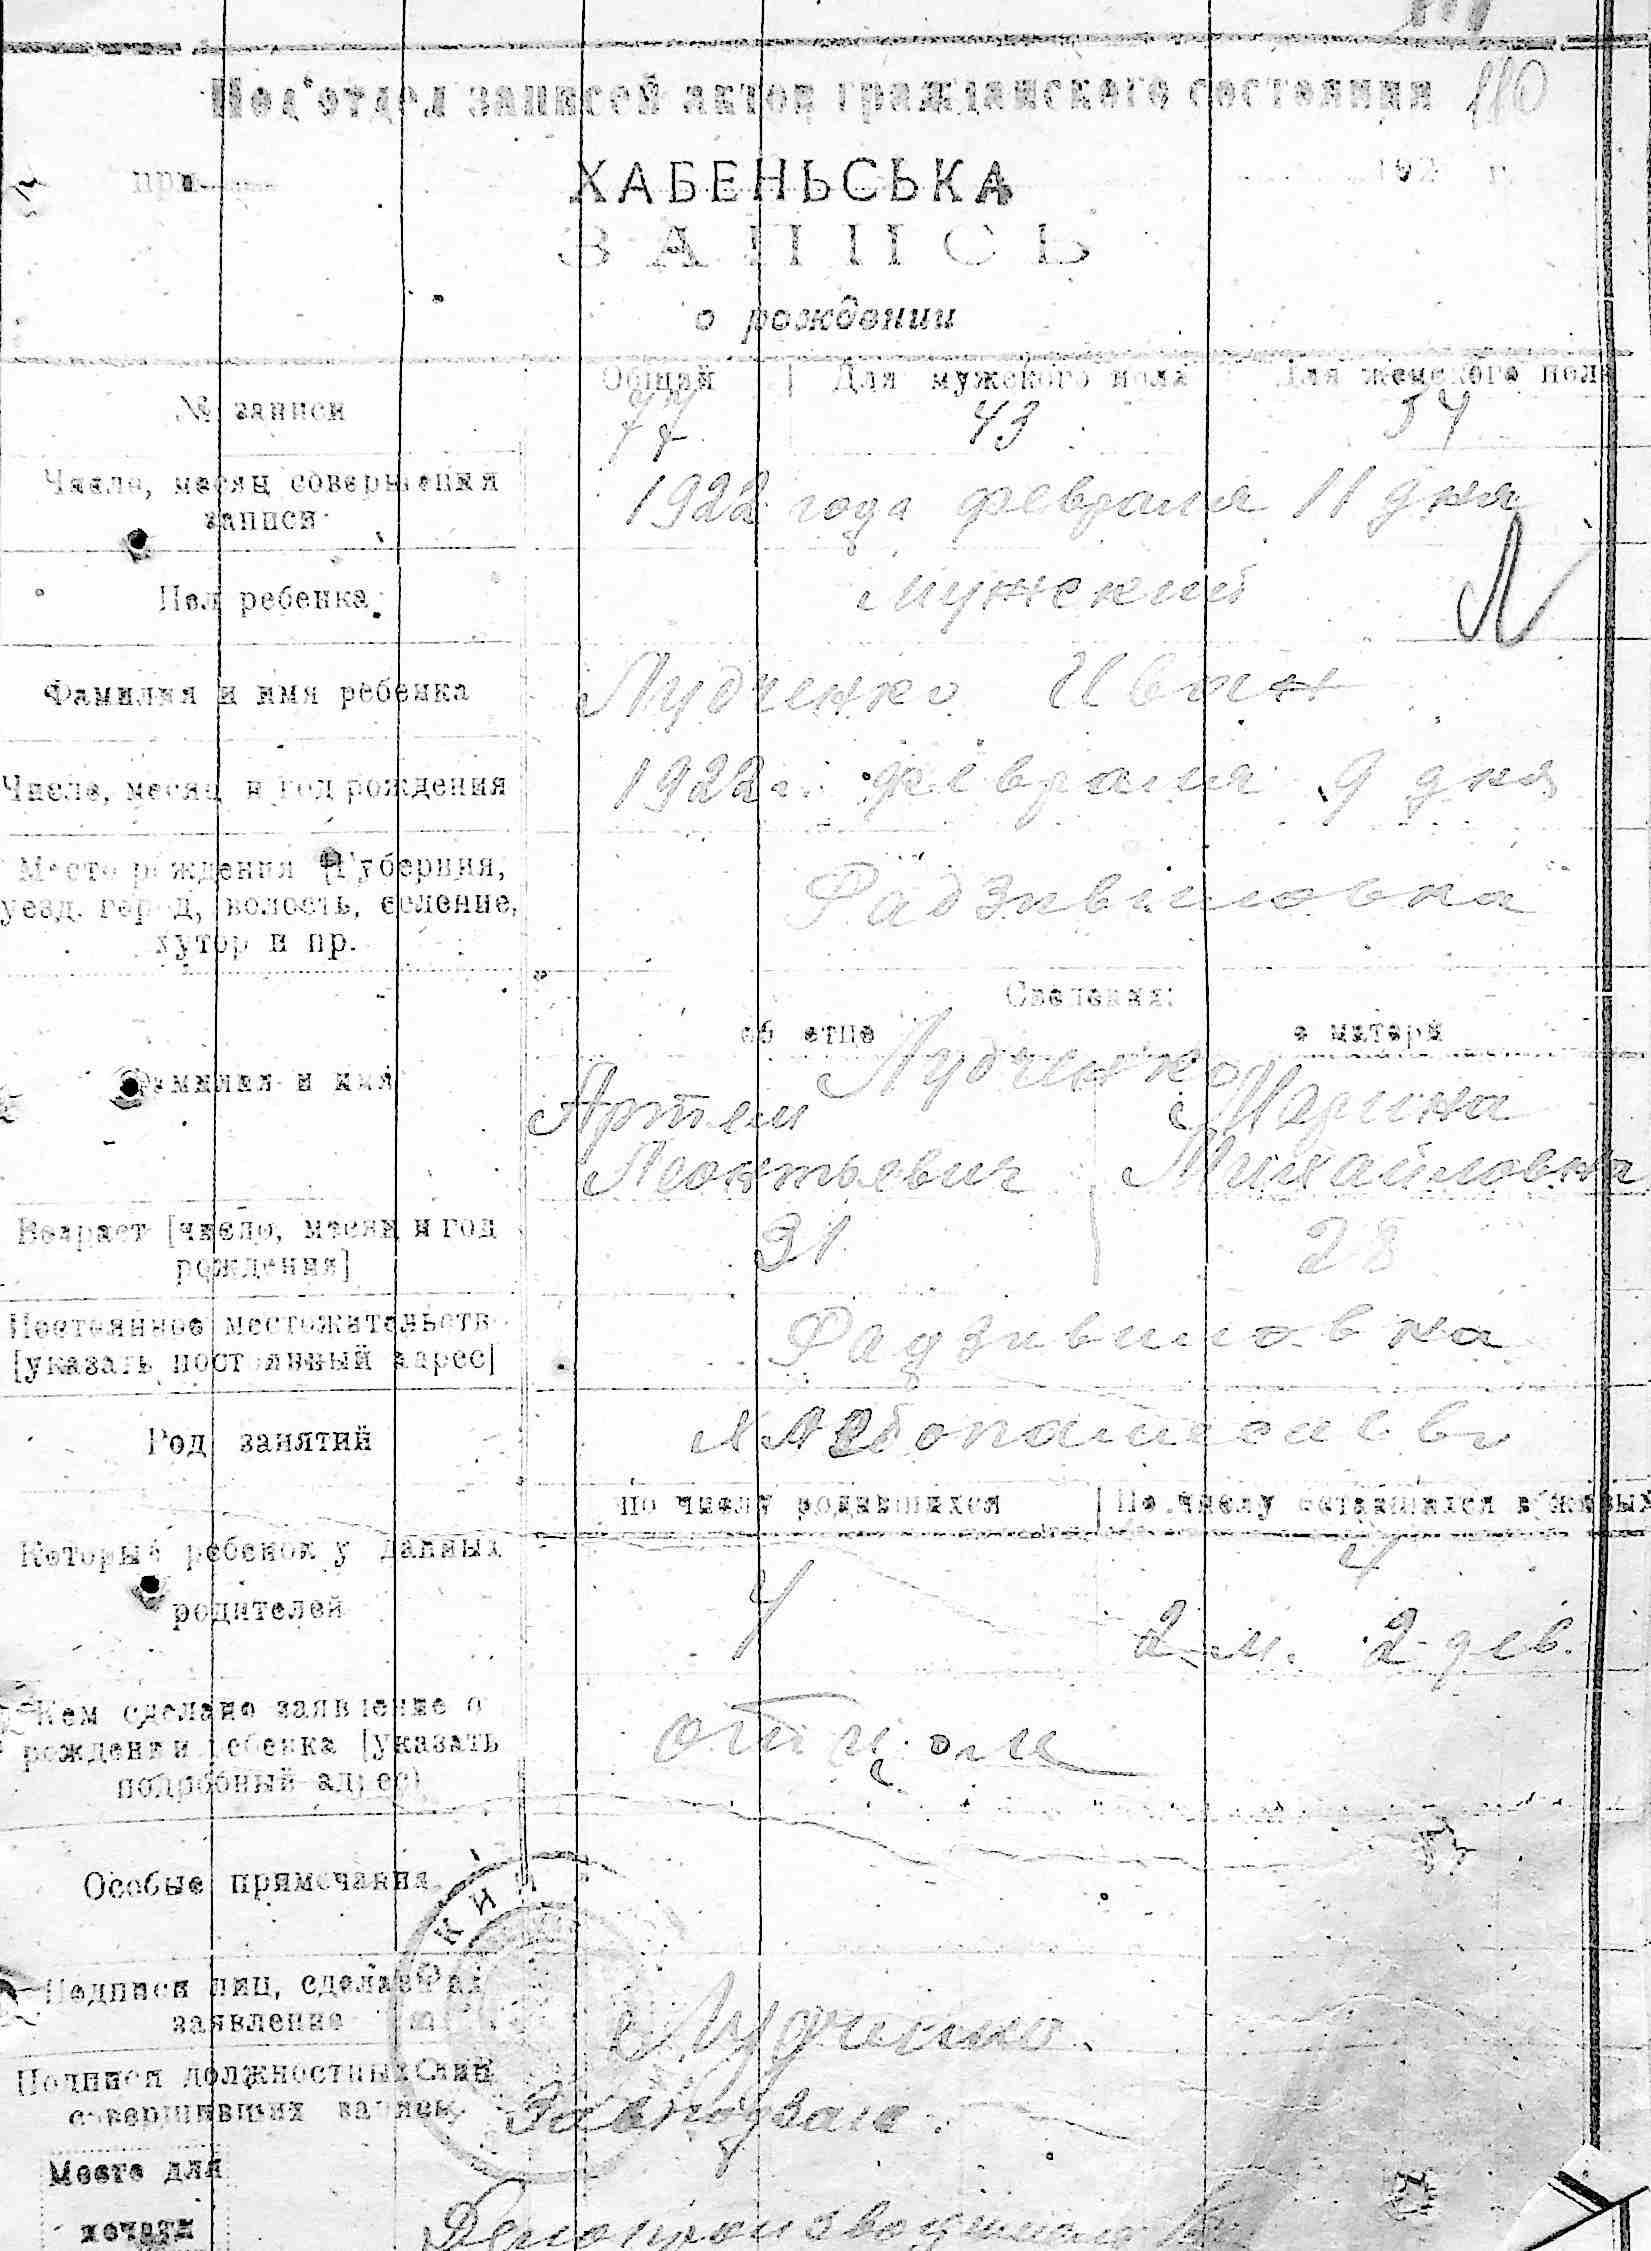 110
Под'отдел записей актов гражданского состояния
при 192 г.
ХАБЕНЬСЬКА
ЗАПИСЬ
о рождении
Общий Для мужского пола Для женского пола
№ записи 77 43 34
Число, месяц совершения записи 1922 года февраля 11 дня
Пол ребенка мужский
Фамилия и имя ребенка Лудченко Иван
Число, месяц и год рождения 1922 г. февраля 9 дня
Место рождения [Губерния,
уезд, город, волость, селение, Радзивиловка
хутор и пр.
Сведения:
об отце о матери
Лудченко
Фамилия и имя Артем Марина
Леонтьевич Михайловна
Возраст [число, месяц и год рождения] 31 28
Постоянное местожительств
[указать постоянный адрес] Радзивиловка
Род занятий хлебопашество
по числу родившихся По числу оставшихся в живых
Который ребенок у данных 4
родителей 4 2 м. 2 дев.
Кем сделано заявление о
рождении ребенка [указать отцом
подробный адрес)
Особые примечания
КИ
Подписи лиц, сделавших
заявление Лудченко
Подписи должностных лиц
совершивших запись Завподзагс
Место для
печати Делопроизводитель